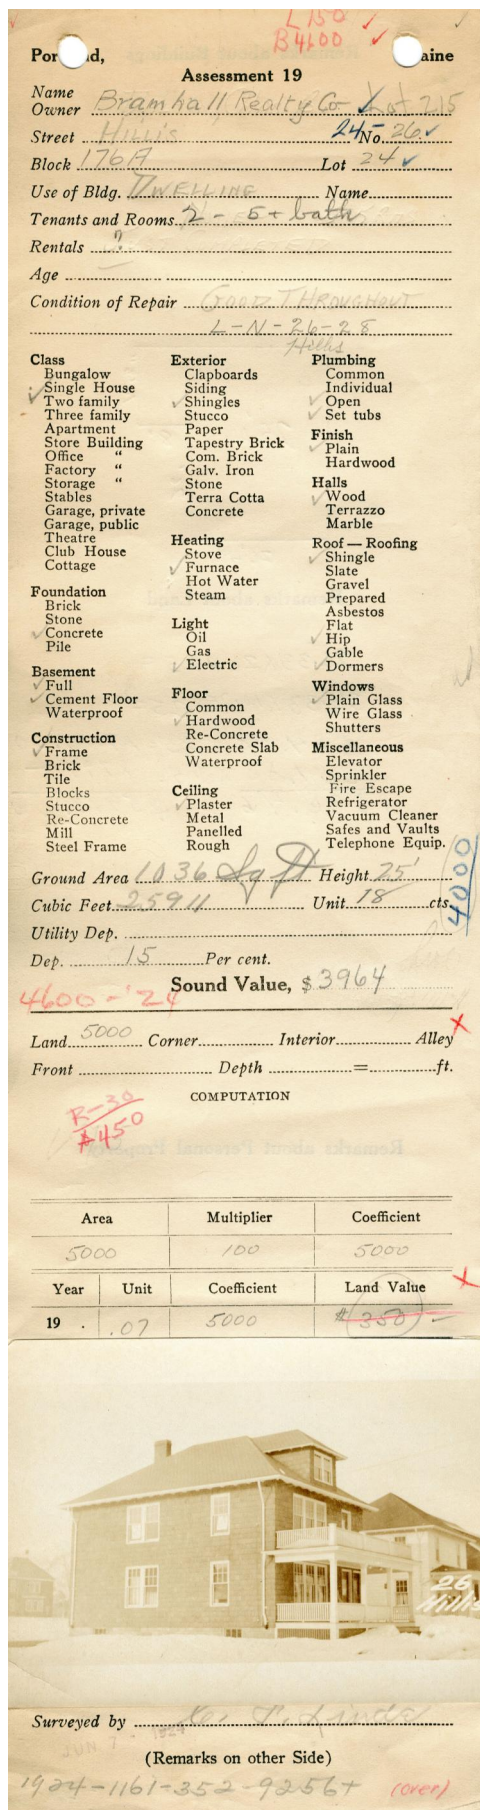 L 150
B 4600
Por nd, aine
Assessment 19
Name
Owner Bramhall Realty Co Lot 215
Street Hillis 24 No. 26
Block 176A Lot 24
Use of Bldg. Dwelling Name
Tenants and Rooms 2 - 5 + bath
Rentals ?
Age
Condition of Repair Good Throughout
L-N-26-28
Hillis
Class
Bungalow
Single House
Two family
Three family
Apartment
Store Building
Office "
Factory "
Storage "
Stables
Garage, private
Garage, public
Theatre
Club House
Cottage
Foundation
Brick
Stone
Concrete
Pile
Basement
Full
Cement Floor
Waterproof
Construction
Frame
Brick
Tile
Blocks
Stucco
Re-Concrete
Mill
Steel Frame
Exterior
Clapboards
Siding
Shingles
Stucco
Paper
Tapestry Brick
Com. Brick
Galv. Iron
Stone
Terra Cotta
Concrete
Heating
Stove
Furnace
Hot Water
Steam
Light
Oil
Gas
Electric
Floor
Common
Hardwood
Re-Concrete
Concrete Slab
Waterproof
Ceiling
Plaster
Metal
Panelled
Rough
Plumbing
Common
Individual
Open
Set tubs
Finish
Plain
Hardwood
Halls
Wood
Terrazzo
Marble
Roof — Roofing
Shingle
Slate
Gravel
Prepared
Asbestos
Flat
Hip
Gable
Dormers
Windows
Plain Glass
Wire Glass
Shutters
Miscellaneous
Elevator
Sprinkler
Fire Escape
Refrigerator
Vacuum Cleaner
Safes and Vaults
Telephone Equip.
Ground Area 1036 Sq ft Height 25'
Cubic Feet 25911 Unit 18 cts.
4000
Utility Dep.
Dep. 15 Per cent.
Sound Value, $ 3964
4600 - '24
Land 5000 Corner Interior Alley
Front Depth = ft.
COMPUTATION
B-30
$450
Area Multiplier Coefficient
5000 100 5000
Year Unit Coefficient Land Value
19 .07 5000 $350
26
Hillis
Surveyed by
JUN 7 - 1924
(Remarks on other Side)
1924-1161-352-9256+ (over)